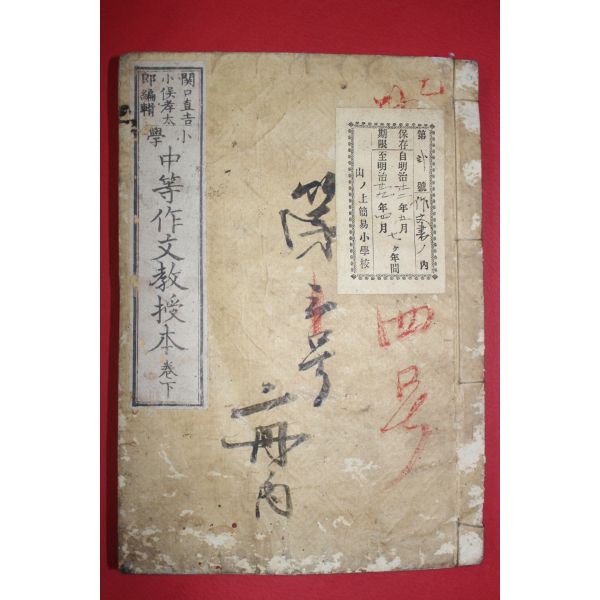 関口直吉
小俣孝太
郎編輯
小學
中等作文教授本 巻下
第 号
二冊内
第 弐 號 作文書ノ内
保存自明治廿二年五月
期限至明治廿九年四月
七ヶ年間
山ノ上簡易小學校
四号